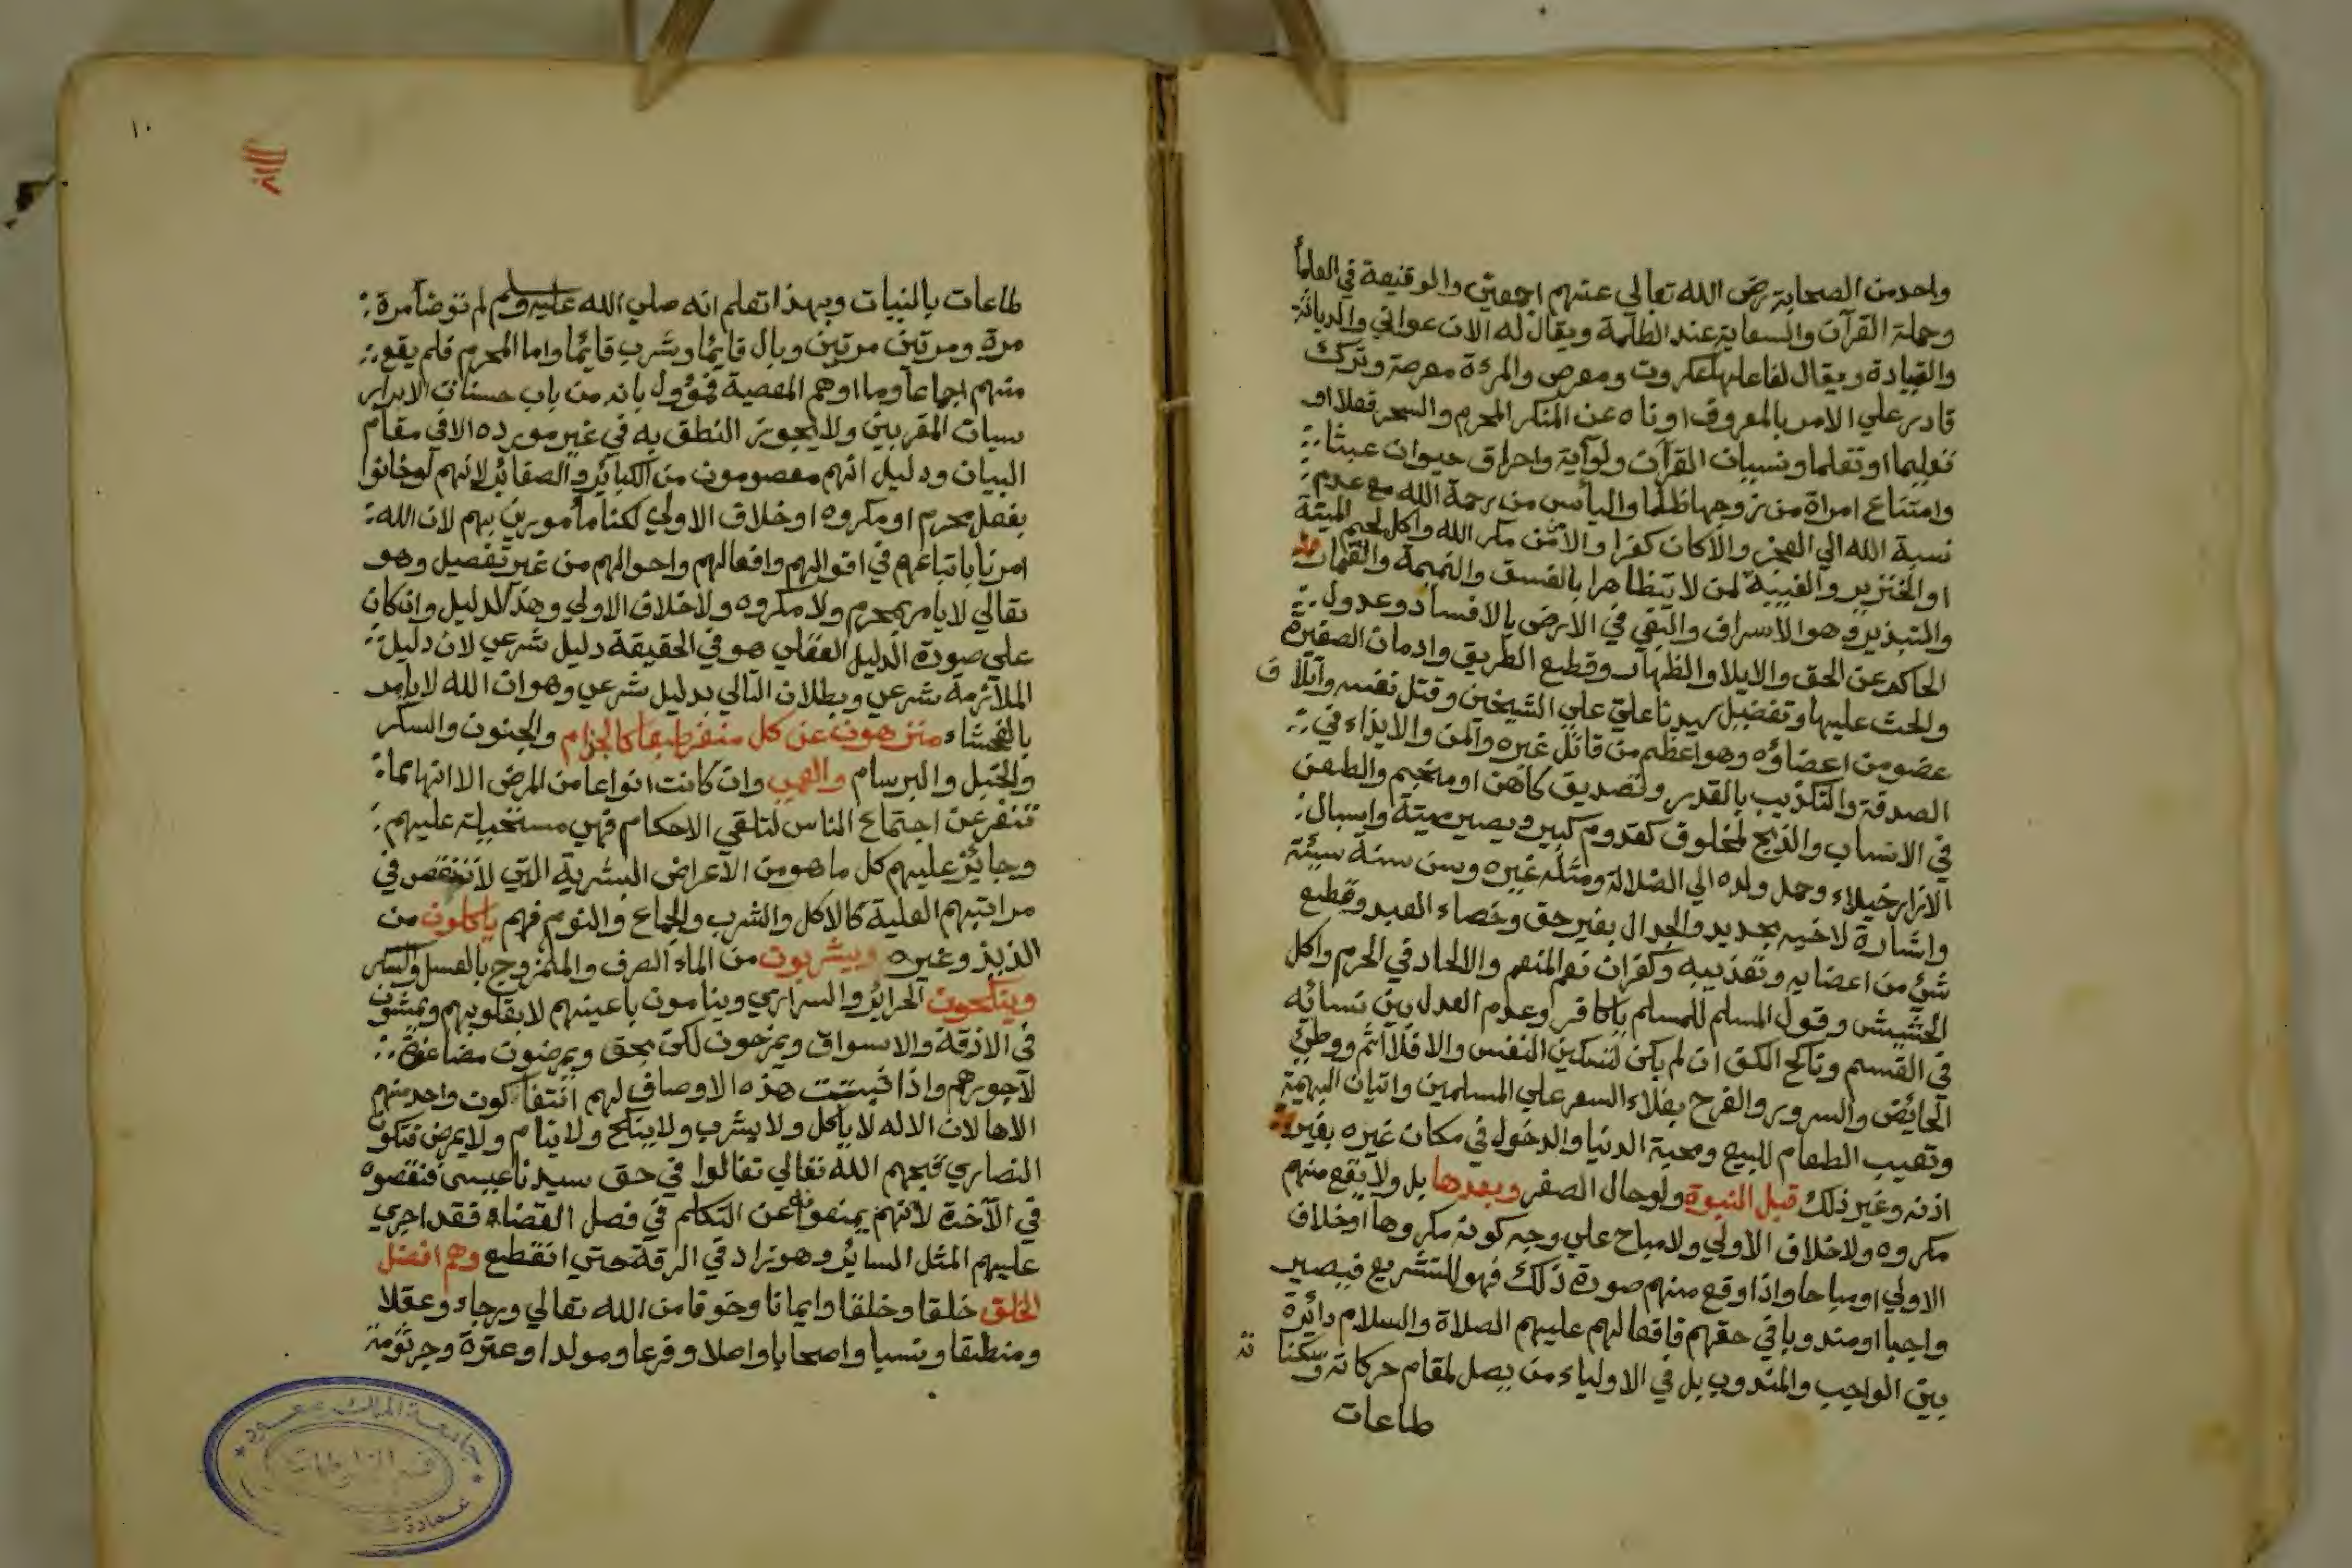 واحد من الصحابة رضي الله تعالى عنهم اجمعين والوقيعة في العلمأ
وحملة القرآن والسعاية عند الظلمة ويقال له الان عواني والدياثة
والقيادة ويقال لفاعلها عكروت ومعرص والمرءة معرصة وترك
قادر علي الامر بالمعروف او ناه عن المنكر المحرم والسحر فعلا او
تعليما او تعلما ونسيان القرآن ولو آية واحراق حيوان عبثا
وامتناع امراة من زوجها ظلما والياس من رحمة الله مع عدم
نسبة الله الي العجز والا كان كفرا والامن من مكر الله واكل لحم الميتة
او الخنزير والغيبة لمن لا يتظاهرا بالفسق والنميمة والقمار
والتبذير وهو الاسراف والبغي في الارض بالافساد وعدول
الحاكم عن الحق والايلا والظهار وقطع الطريق وادمان الصغيرة
والحث عليها وتفضيل سيدنا علي علي الشيخين وقتل نفسه واتلاف
عضو من اعضاؤه وهو اعظم من قاتل غيره والمن والايذاء في
الصدقة والتكذيب بالقدر وتصديق كاهن او منجم والطعن
في الانساب والذبح لمخلوق كقدوم كبير ويصير ميتة واسبال
الازار خيلاء وحمل ولده الي الضلالة ومثله غيره وسن سنة سيئة
واشارة لاخيه بحديد والجدال بغير حق وخصاء العبد وقطع
شئ من اعضايه وتعذيبه وكفران نعم المنعم والالحاد في الحرم واكل
الحشيش وقول المسلم للمسلم ياكافر وعدم العدل بين نسائه
في القسم وناكح الكف ان لم يكن لتسكين النفس والا فلا اثم ووطئ
الحائض والسرور والفرح بغلاء السعر علي المسلمين واتيان البهيمة
وتعييب الطعام للبيع ومحبة الدنيا والدخول في مكان غيره بغير
اذنه وغير ذلك قبل النبوة ولو حال الصغر وبعدها بل ولا يقع منهم
مكروه ولا خلاف الاولي ولا مباح علي وجه كونه مكروها او خلاف
الاولي او مباحا واذا وقع منهم صورة ذلك فهو للتشريع فيصير
واجبا او مندوبا في حقهم فافعالهم عليهم الصلاة والسلام دائرة
بين الواجب والمندوب بل في الاولياء من يصل لمقام حركاته وسكناته
طاعات
١٠
طاعات بالنيات وبهذا تعلم انه صلي الله عليه وسلم لم توضأ مرة
مرة ومرتين مرتين وبال قايما وشرب قايما واما المحرم فلم يقع
منهم اجماعا وما اوهم المعصية فمؤول بانه من باب حسنات الابرار
سيات المقربين ولا يجوز النطق به في غير مورده الا في مقام
البيان ودليل انهم معصومون من الكبائر والصغائر لانهم لو خانوا
بفعل محرم او مكروه او خلاف الاولي لكنا مأمورين بهم لان الله
امرنا باتباعهم في اقوالهم وافعالهم واحوالهم من غير تفصيل وهو
تعالي لا يامر بمحرم ولا مكروه ولا خلاف الاولي وهذا الدليل وان كان
علي صورة الدليل العقلي هو في الحقيقة دليل شرعي لان دليل
الملازمة شرعي وبطلان التالي بدليل شرعي وهو ان الله لا يامر
بالفحشاء منزهون عن كل منفر طبعا كالجزام والجنون والسكر
والخبل والبرسام والعمي وان كانت انواعا من المرض الا انها مما
تنفر عن اجتماع الناس لتلقي الاحكام فهي مستحيلة عليهم
وجائز عليهم كل ما هو من الاعراض البشرية التي لا تنقص في
مراتبهم العلية كالاكل والشرب والجماع والنوم فهم ياكلون من
الذيذ وغيره ويشربون من الماء الصرف والممزوج بالعسل والسكر
وينكحون الحرائر والسراري وينامون باعينهم لا بقلوبهم ويمشون
في الازقة والاسواق ويمزحون لكن بحق ويمرضون مضاعفة
لاجورهم واذا ثبتت هذه الاوصاف لهم انتفا كون واحد منهم
الاها لان الاله لا ياكل ولا يشرب ولا ينكح ولا ينام ولا يمرض فتكون
النصاري قبحهم الله تعالي تغالوا في حق سيدنا عيسى فنقصوه
في الآخرة لانهم يمنعونه عن التكلم في فصل القضاء فقد اجري
عليهم المثل السائر وهو زاد في الرقة حتي انقطع وهم افضل
الخلق خلقا وخلقا وايمانا وخوفا من الله تعالي ورجاء وعقلا
ومنطقا ونسبا واصحابا واصلا وفرعا ومولدا وعترة وجرثومة
جامعة الملك سعود
قسم المخطوطات
عمادة